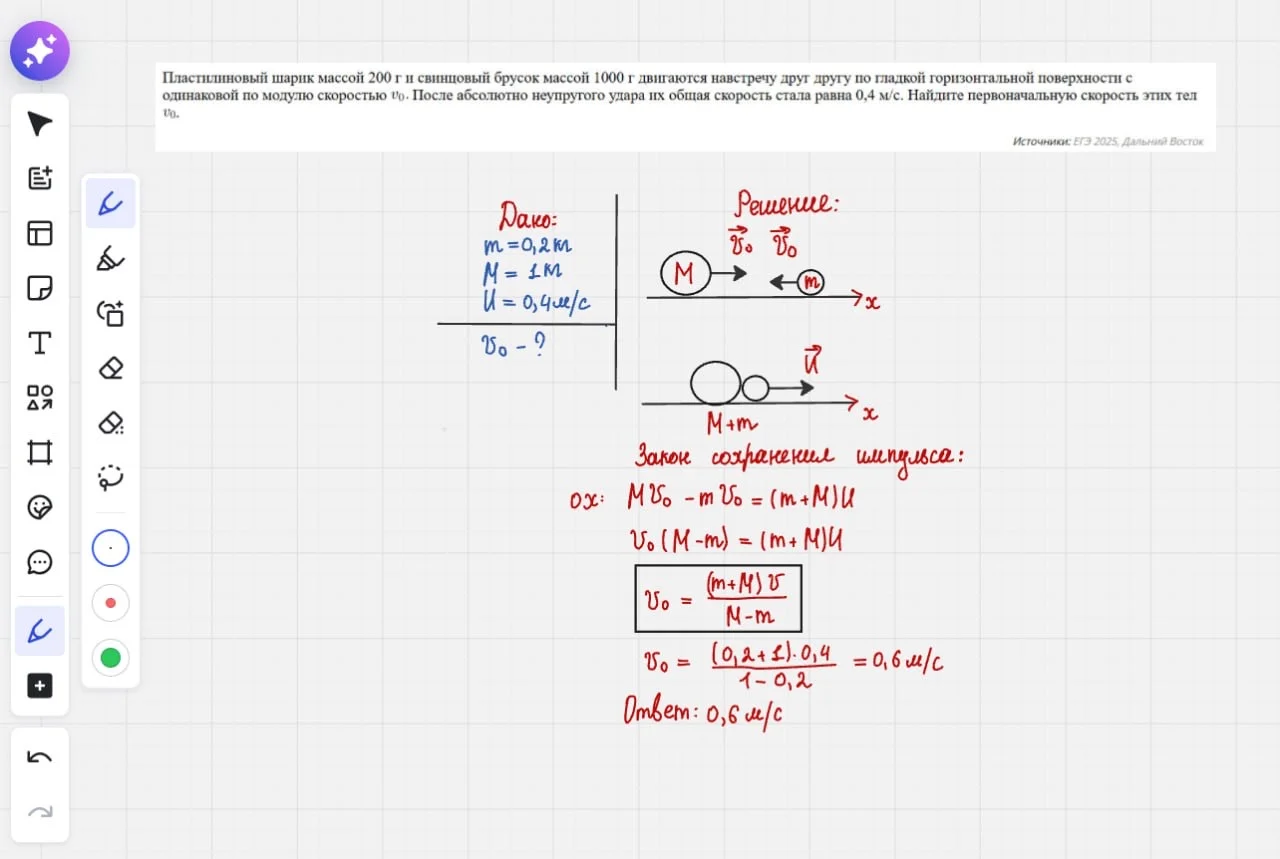 Пластилиновый шарик массой 200 г и свинцовый брусок массой 1000 г двигаются навстречу друг другу по гладкой горизонтальной поверхности с
одинаковой по модулю скоростью v₀. После абсолютно неупругого удара их общая скорость стала равна 0,4 м/с. Найдите первоначальную скорость этих тел
v₀.
Источники: ЕГЭ 2025, Дальний Восток
Дано:
m = 0,2 кг
M = 1 кг
U = 0,4 м/с
v₀ - ?
Решение:
v⃗₀ v⃗₀
M m
x
U⃗
x
M+m
Закон сохранения импульса:
ox: Mv₀ - mv₀ = (m+M)U
v₀(M-m) = (m+M)U
v₀ = (m+M)v / M-m
v₀ = (0,2+1)·0,4 / 1-0,2 = 0,6 м/с
Ответ: 0,6 м/с
T